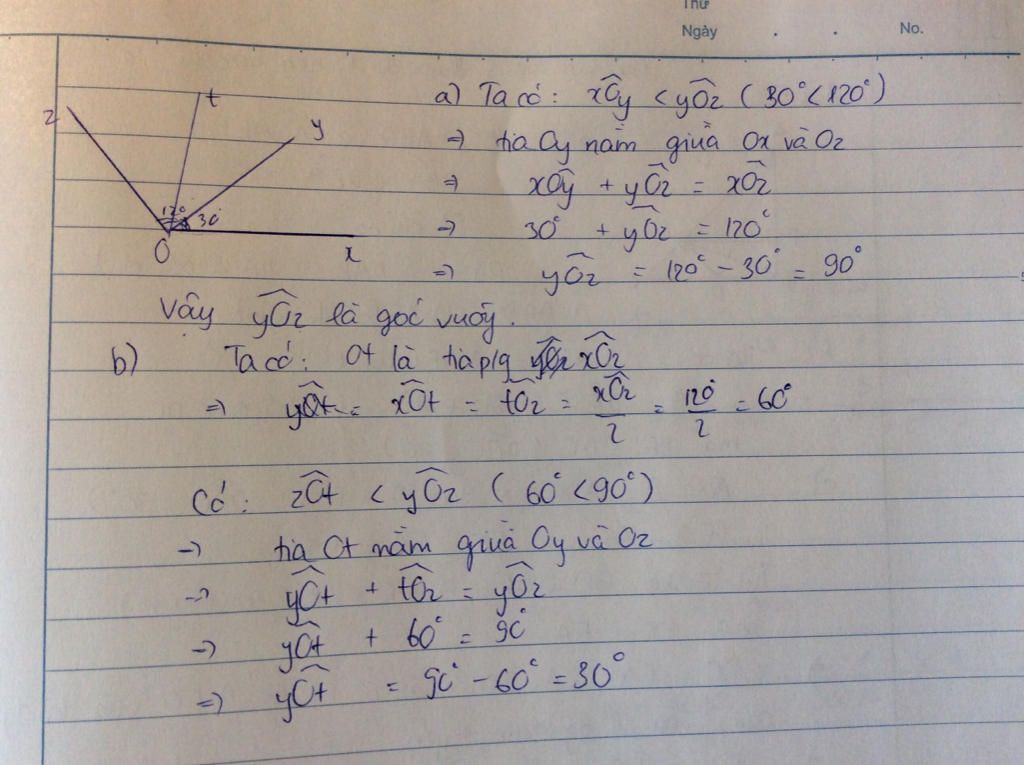 Thứ
Ngày . . No.
z t y
120° 30°
O x
a) Ta có: xÔy < yÔz (30° < 120°)
=> tia Oy nằm giữa Ox và Oz
=> xÔy + yÔz = xÔz
=> 30° + yÔz = 120°
=> yÔz = 120° - 30° = 90°
Vậy yÔz là góc vuông.
b) Ta có: Ot là tia p/g xÔz
=> xÔt = tÔz = xÔz/2 = 120°/2 = 60°
Có: zÔt < yÔz (60° < 90°)
=> tia Ot nằm giữa Oy và Oz
=> yÔt + tÔz = yÔz
=> yÔt + 60° = 90°
=> yÔt = 90° - 60° = 30°